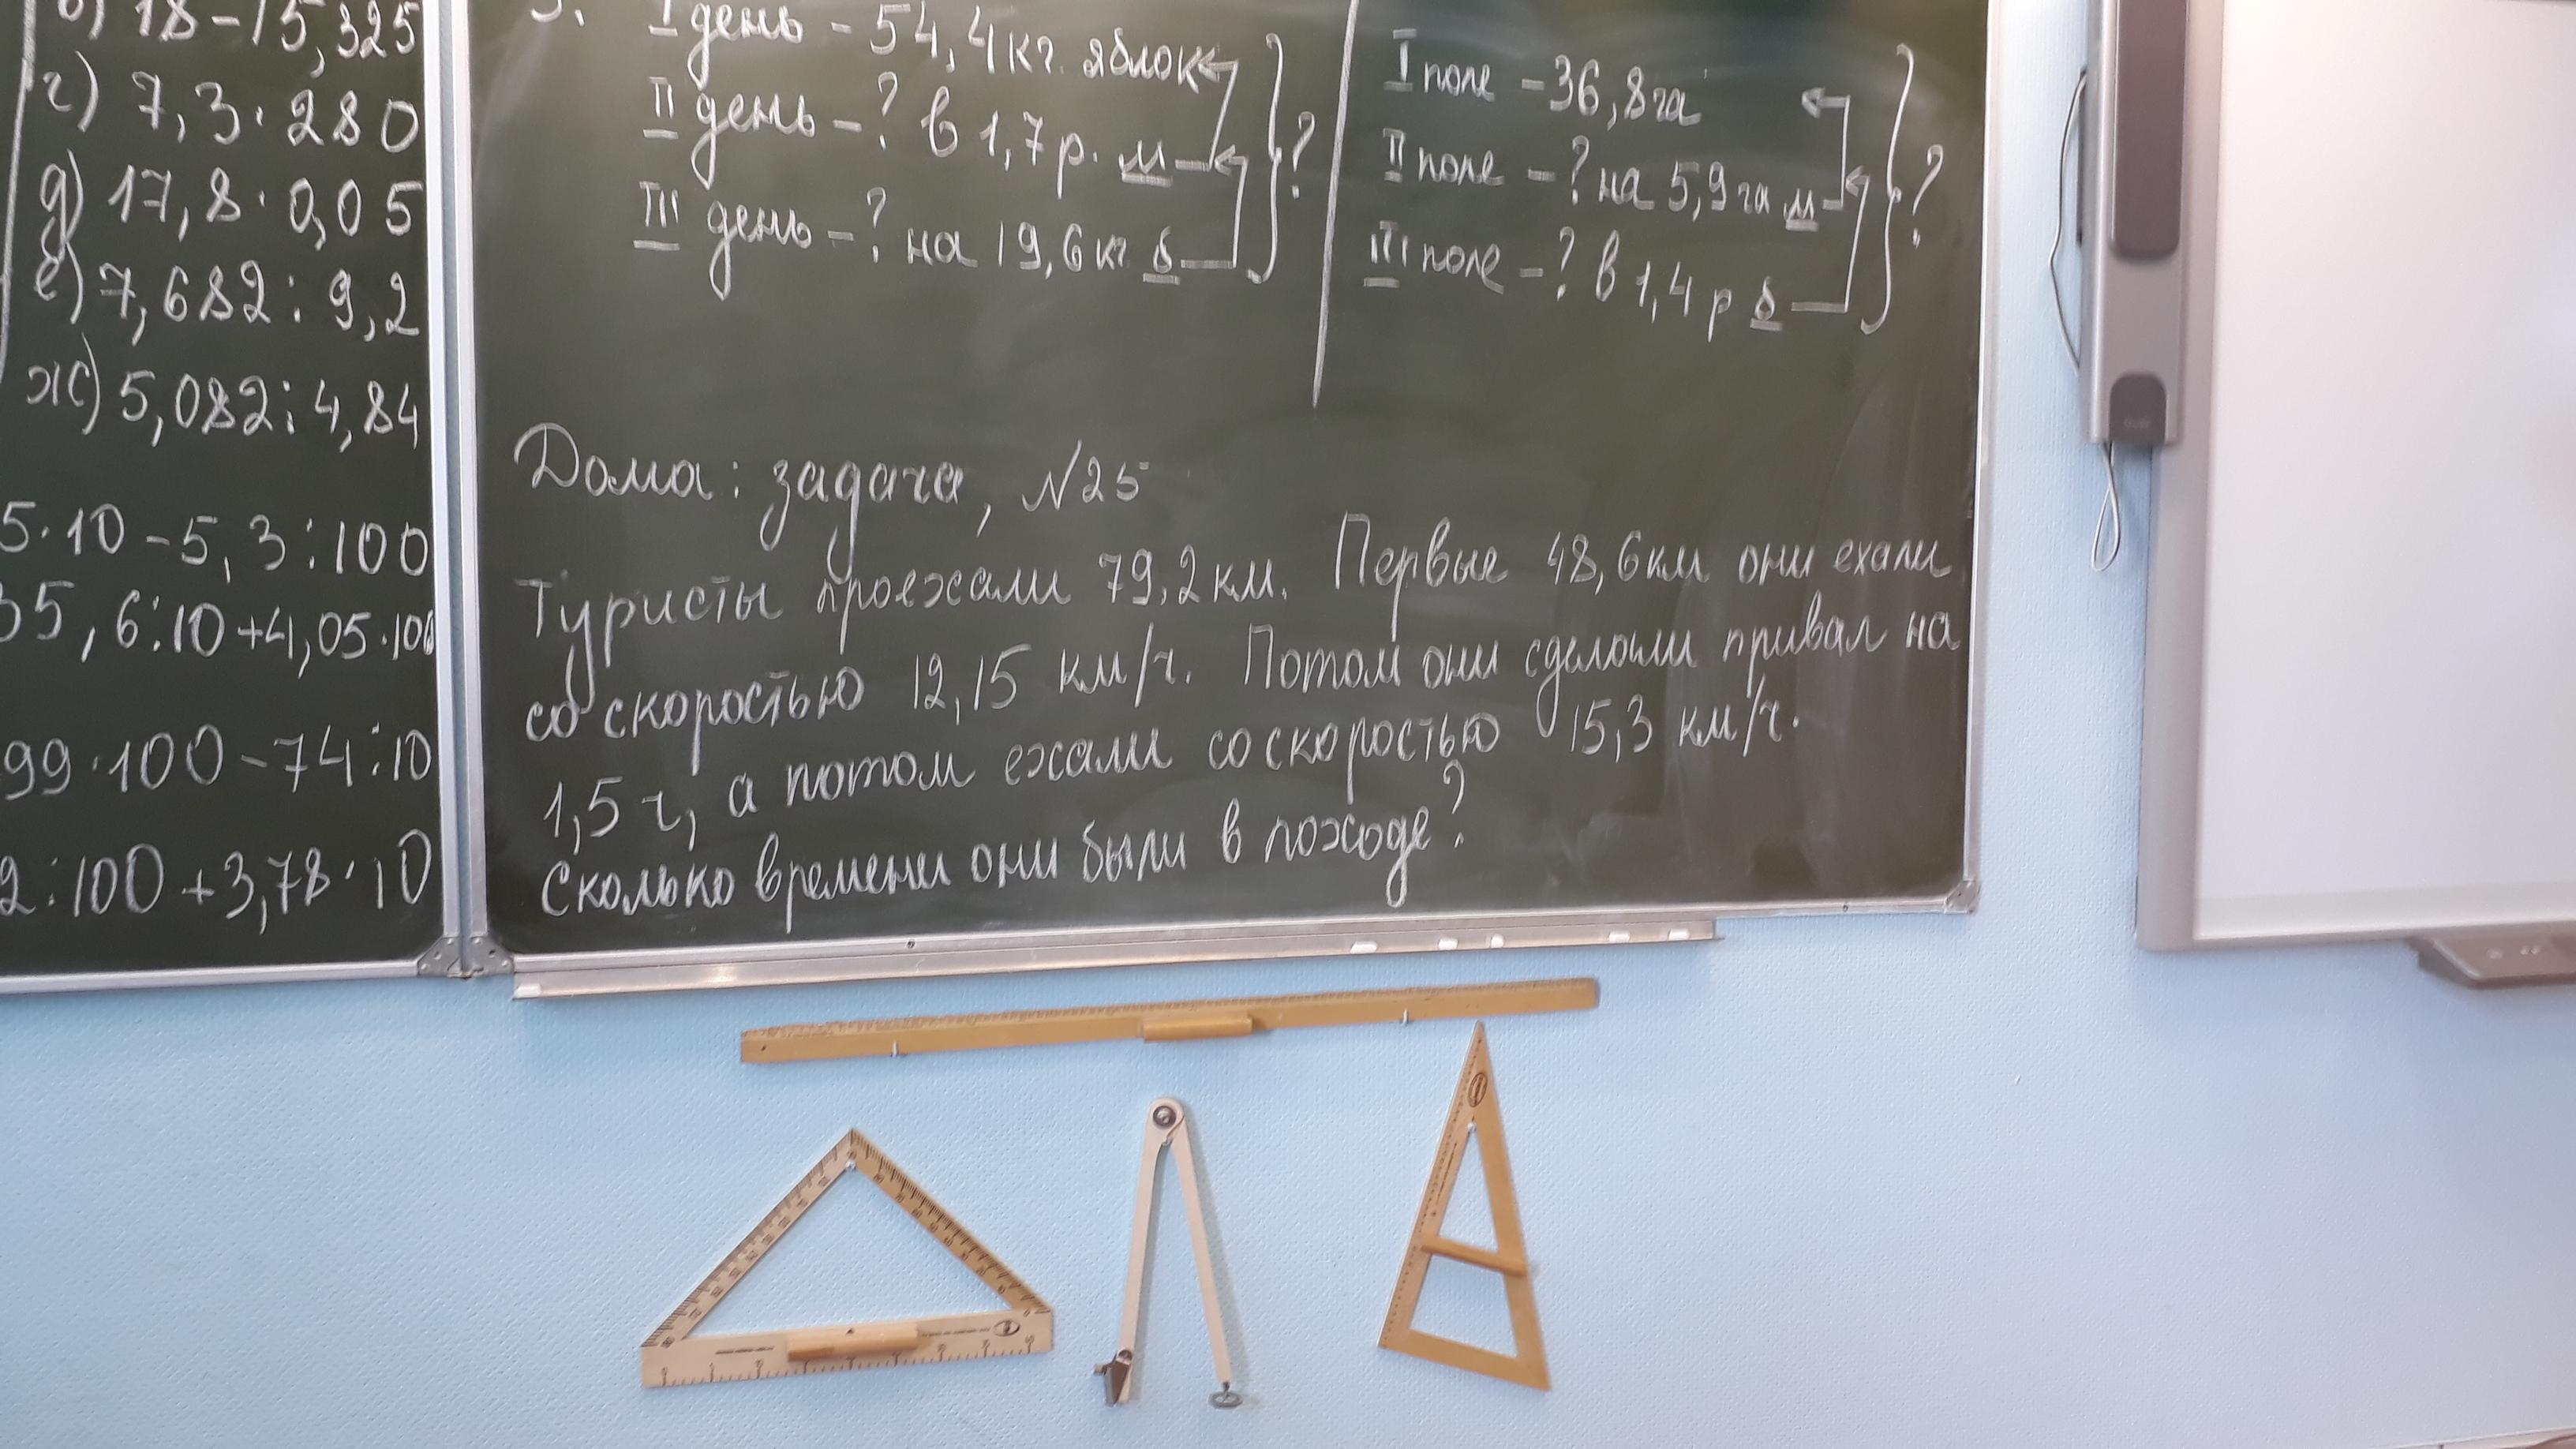 в) 18 - 15,325
г) 7,3 · 280
д) 17,8 · 0,05
е) 7,682 : 9,2
ж) 5,082 : 4,84
5 · 10 - 5,3 : 100
35,6 : 10 + 4,05 · 100
99 · 100 - 74 : 10
2 : 100 + 3,78 · 10
I день - 54,4 кг. яблок
II день - ? в 1,7 р. м
III день - ? на 19,6 кг б
?
I поле - 36,8 га
II поле - ? на 5,9 га м
III поле - ? в 1,4 р б
?
Дома: задача, №25
Туристы проехали 79,2 км. Первые 48,6 км они ехали
со скоростью 12,15 км/ч. Потом они сделали привал на
1,5 ч, а потом ехали со скоростью 15,3 км/ч.
Сколько времени они были в походе?